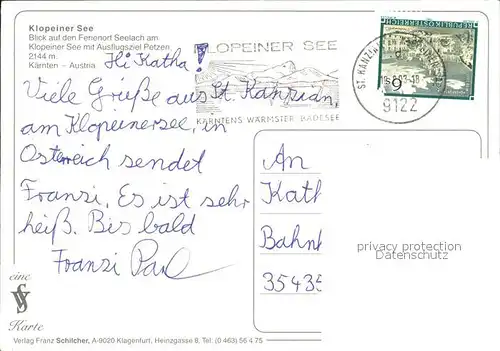 Klopeiner See
Blick auf den Ferienort Seelach am
Klopeiner See mit Ausflugsziel Petzen,
2144 m.
Kärnten – Austria
Hi Katha!
KLOPEINER SEE
KÄRNTENS WÄRMSTER BADESEE
REPUBLIK ÖSTERREICH
6
ST. KANZIAN
9122
Viele Grüße aus St. Kanzian,
am Klopeinersee, in
Österreich sendet
Franzi. Es ist sehr
heiß. Bis bald
Franzi
An
Kath
Bahn
35435
privacy protection
Datenschutz
eine
Karte
Verlag Franz Schilcher, A-9020 Klagenfurt, Heinzgasse 8, Tel. (0 463) 56 4 75